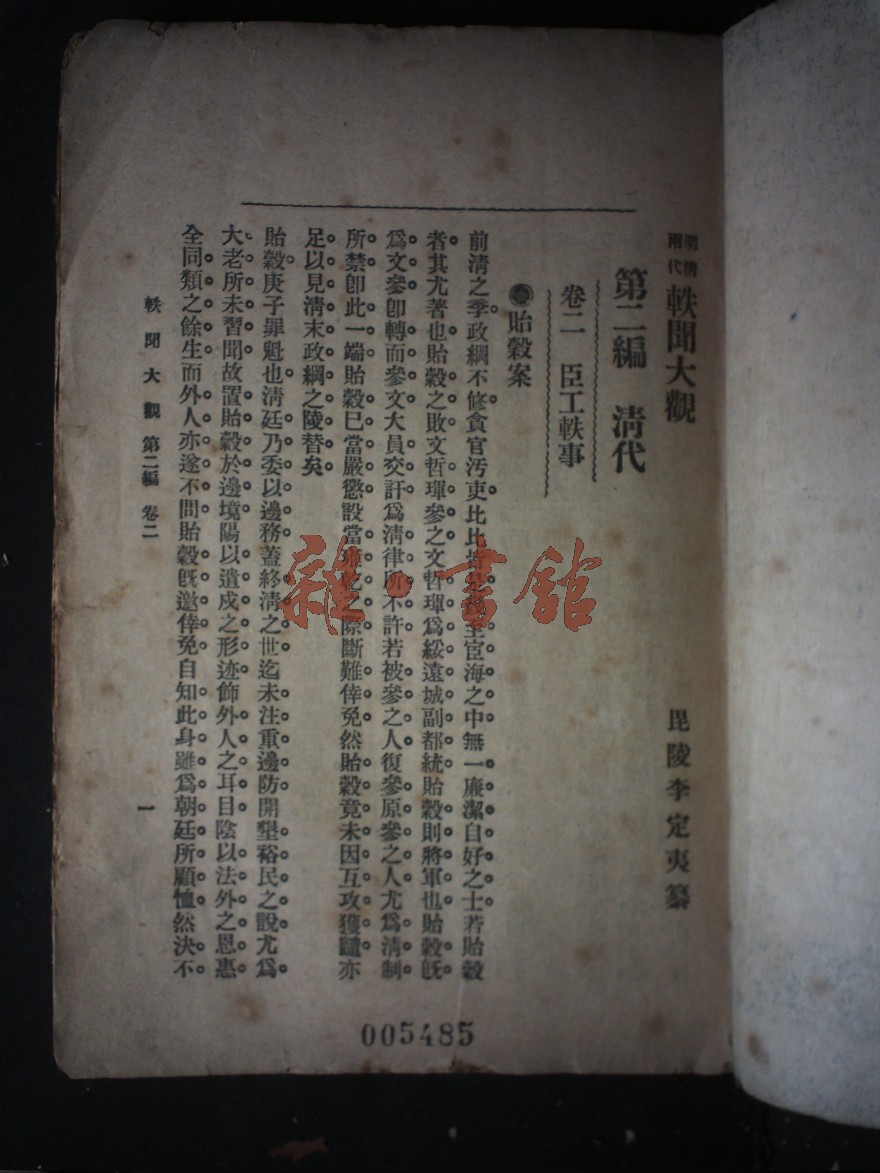 明清兩代軼聞大觀
毘陵李定夷纂
第二編 淸代
卷二 臣工軼事
●貽穀案
前淸之季政綱不修貪官汚吏比比皆是至宦海之中無一廉潔自好之士若貽穀
者其尤著也貽穀之敗文哲琿參之文哲琿爲綏遠城副都統貽穀則將軍也貽穀旣
爲文參卽轉而參文大員交訐爲淸律所不許若被參之人復參原參之人尤爲淸制
所禁卽此一端貽穀已當嚴懲設當雍乾之際斷難倖免然貽穀竟未因互攻獲譴亦
足以見淸末政綱之陵替矣
貽穀庚子罪魁也淸廷乃委以邊務蓋終淸之世迄未注重邊防開墾裕民之說尤爲
大老所未習聞故置貽穀於邊境陽以遣戍之形迹飾外人之耳目陰以法外之恩惠
全同類之餘生而外人亦遂不問貽穀旣邀倖免自知此身雖爲朝廷所顧恤然決不
軼聞大觀 第二編 卷二
一
005485
雜·書館